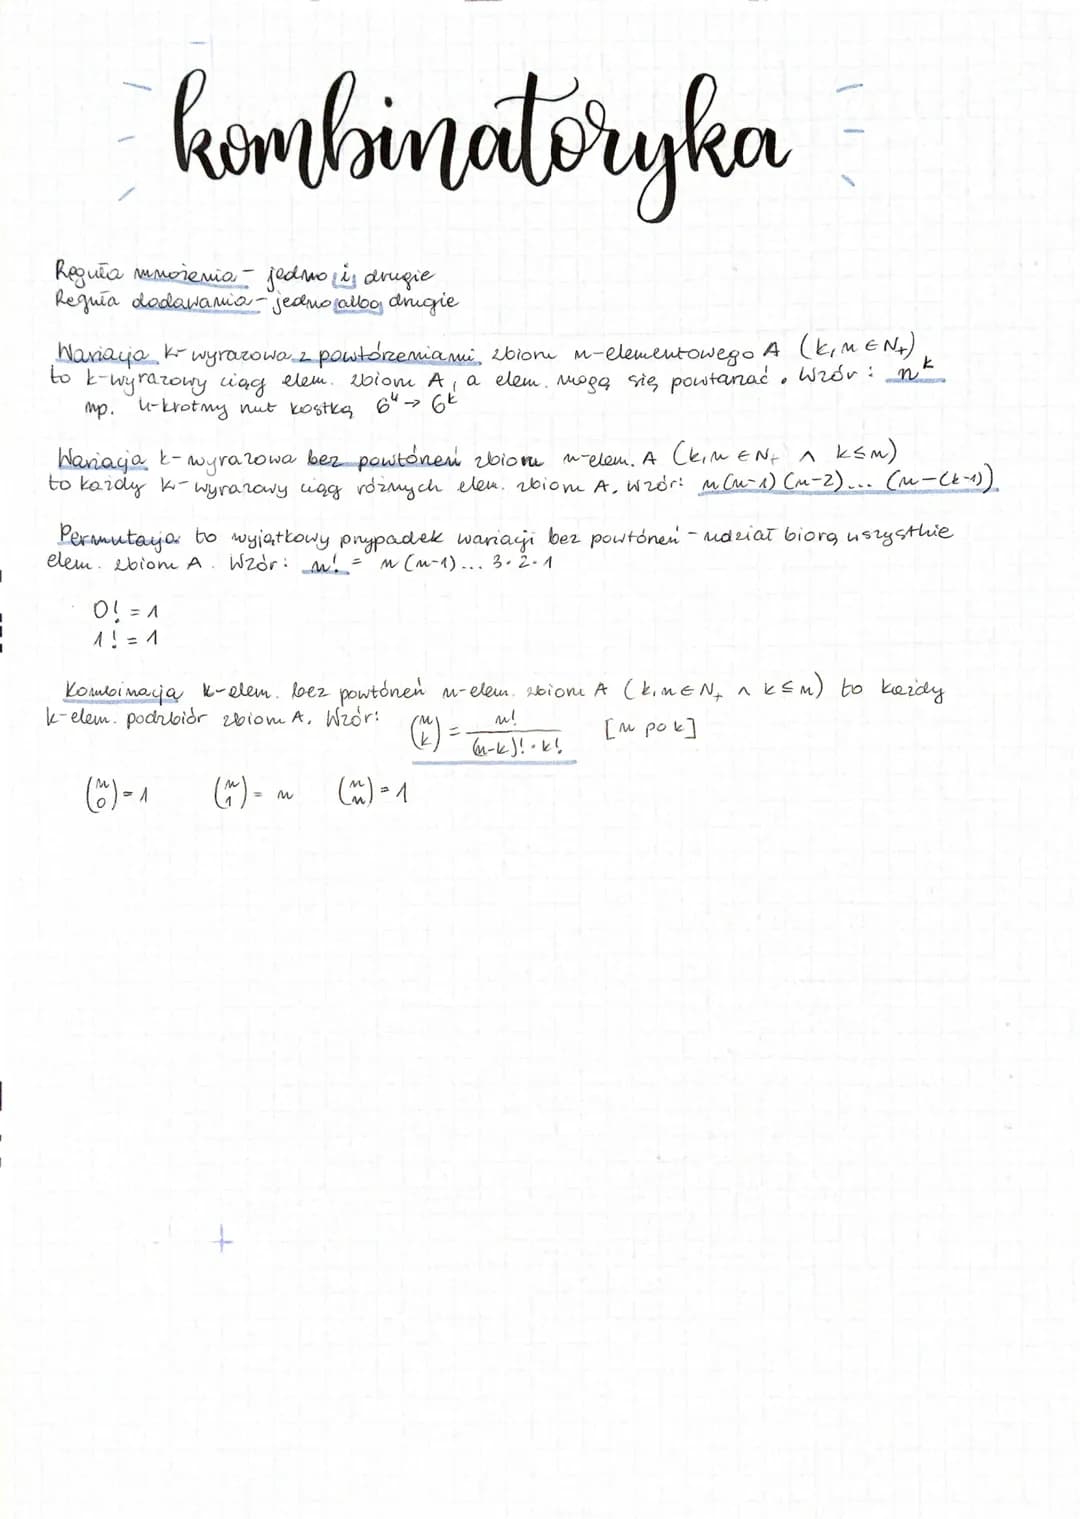 kombinatoryka
Reguła mnożenia - jedno i drugie
Reguła dodawania - jedno albo drugie
Wariacja k-wyrazowa z powtórzeniami zbioru n-elementowego A (k, n ∈ N₊)
to k-wyrazowy ciąg elem. zbioru A, a elem. mogą się powtarzać. Wzór: nᵏ
np. 4-krotny rzut kostką 6⁴ → 6ᵏ
Wariacja k-wyrazowa bez powtórzeń zbioru n-elem. A (k, n ∈ N₊ ∧ k≤n)
to każdy k-wyrazowy ciąg różnych elem. zbioru A. Wzór: n(n-1)(n-2)... (n-(k-1))
Permutacja to wyjątkowy przypadek wariacji bez powtórzeń - udział biorą wszystkie
elem. zbioru A. Wzór: n! = n(n-1)... 3·2·1
0! = 1
1! = 1
Kombinacja k-elem. bez powtórzeń n-elem. zbioru A (k, n ∈ N₊ ∧ k≤n) to każdy
k-elem. podzbiór zbioru A. Wzór: (n k) = n! / (n-k)!·k! [n po k]
(n 0) = 1 (n 1) = n (n n) = 1